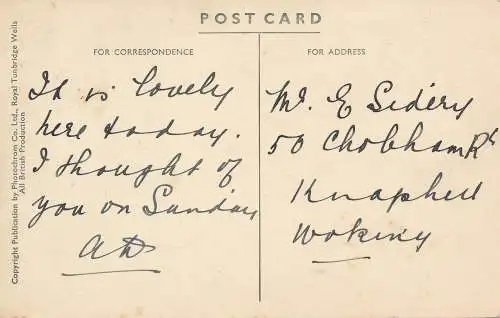 POST CARD
FOR CORRESPONDENCE
It is lovely
here today.
I thought of
you on Sunday
AD
FOR ADDRESS
Mr. E Sidery
50 Chobham Rd
Knaphill
Woking
Copyright Publication by Photochrom Co. Ltd., Royal Tunbridge Wells
All British Production